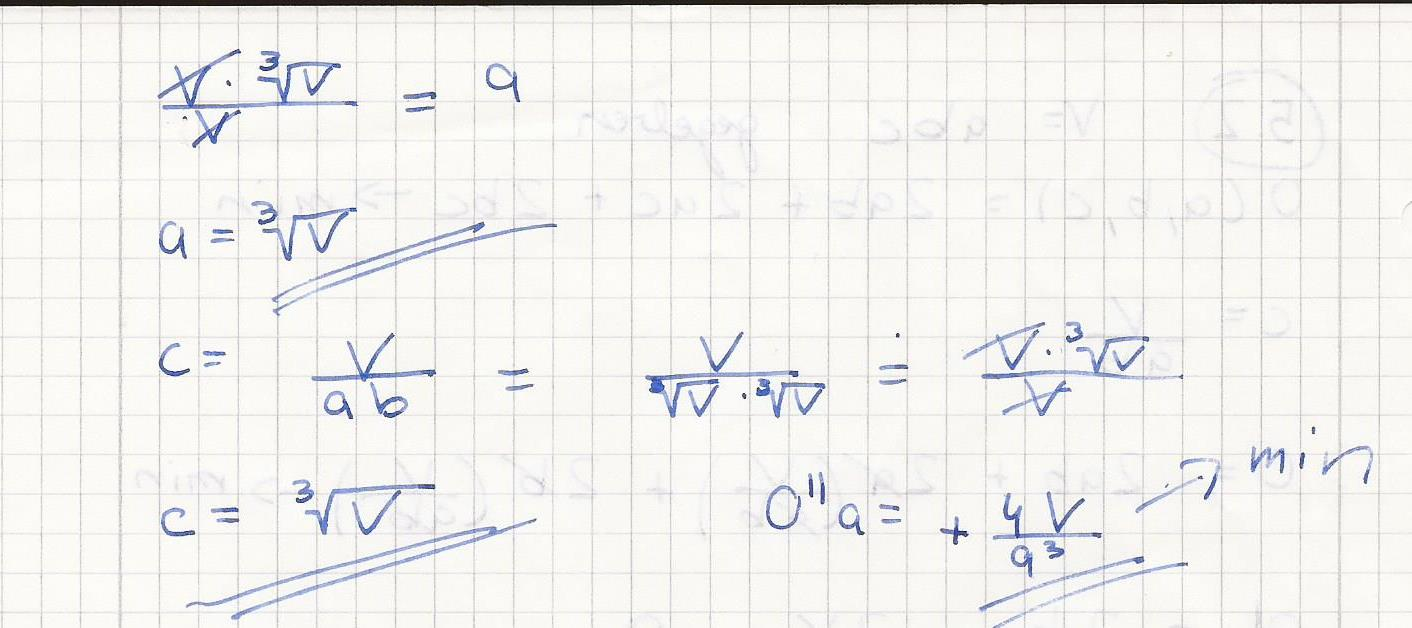 V · ∛V / V = a
a = ∛V
c = V / ab = V / ∛V · ∛V = V · ∛V / V
c = ∛V O"a = + 4V / a³ → min